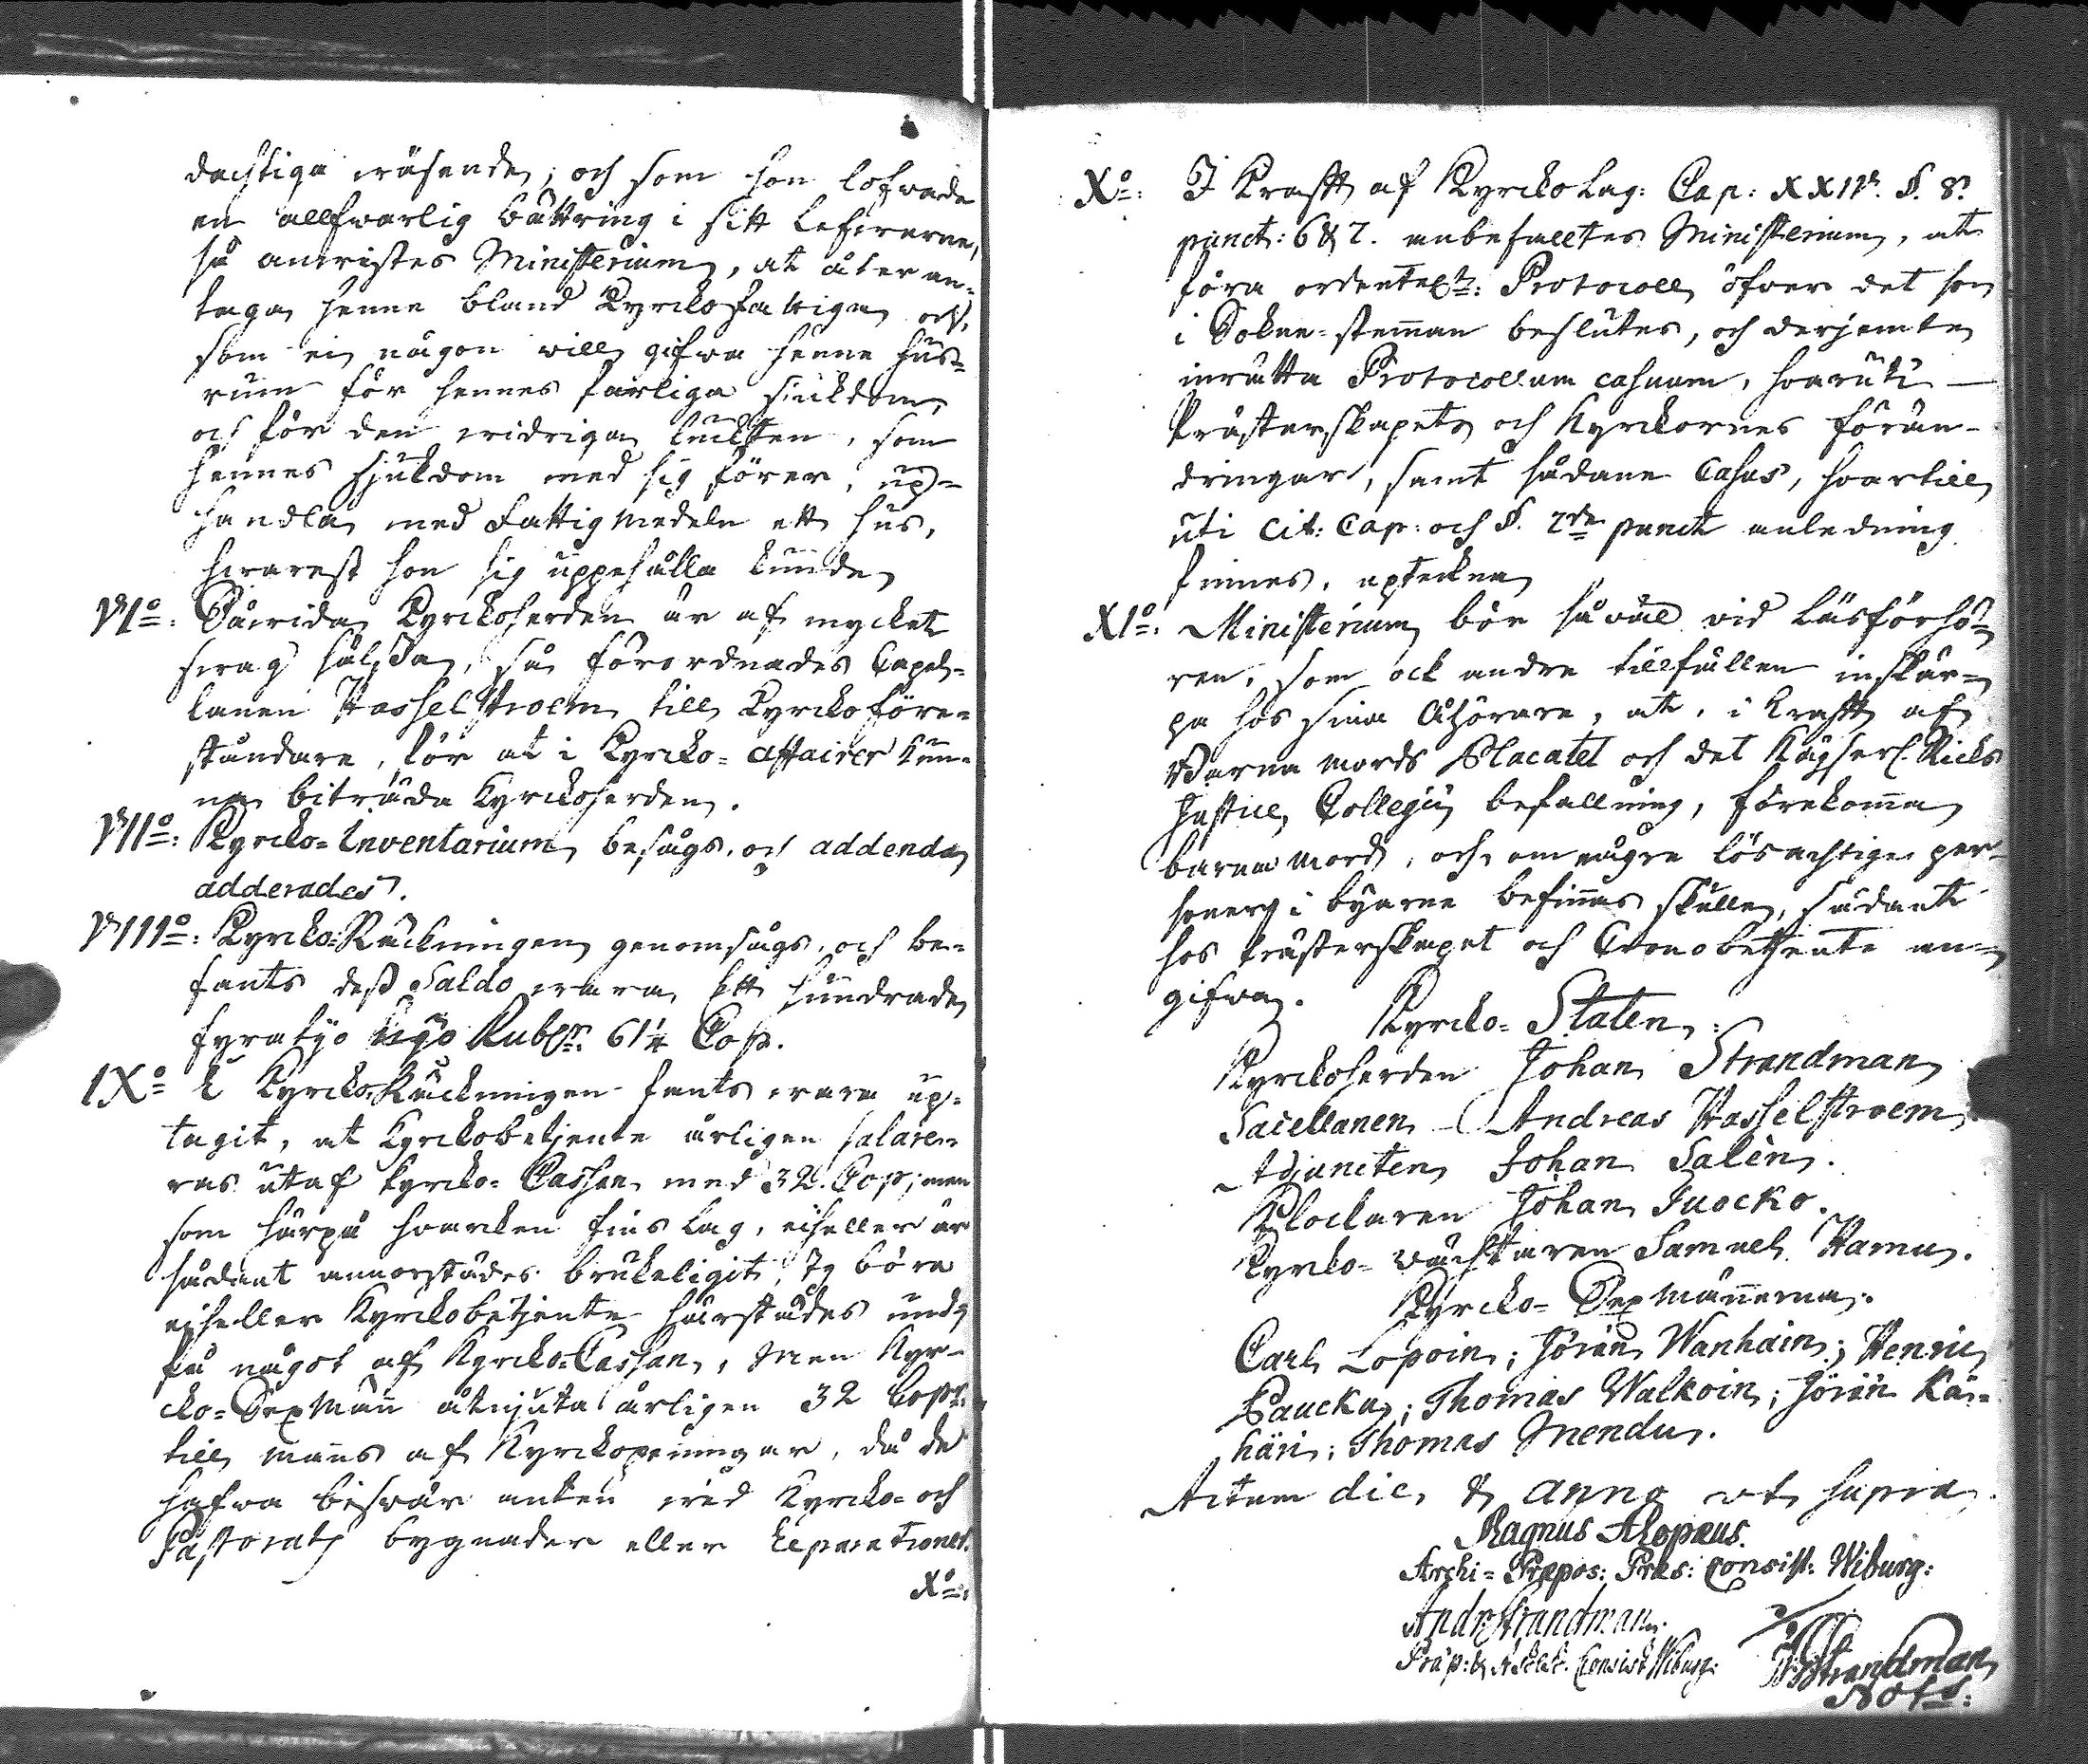 dachtiga wäsende; och som hon lofwade
en allfwarlig bättring i sitt lefwerne,
så anwistes Ministerium, at åter an-
taga henne bland Kyrckofattiga och,
som ej någon will gifwa henne hus-
rum för hennes farliga siukdom,
och för den widriga luckten, som
hennes sjukdom med sig förer, up-
handla med Fattigmedeln ett hus,
hwarest hon sig uppehålla kunde
VIo: Såwida Kyrckoherden är af mycket
swag hälsa, så förordnades Capel-
lanen Hasselstroem till Kyrcko före-
ståndare, för at i Kyrcko-affairer kun-
na biträda Kyrckoherden.
VIIo: Kyrcko-Inventarium besågs, och addenda
adderades.
VIIIo: Kyrcko-Räckningen genomsågs, och be-
fants dess Saldo wara Ett hundrade
fyratijo Rubr: 61 1/4 Cop.
IXo I Kyrcko-Räckningen fants wara up-
tagit, at Kyrckobetjente årligen salare-
ras utaf Kyrcko-Cassan med 32. Cop; men
som härpå hvarcken fins lag, ejheller är
sådant annorstädes brukeligit, Ty böra
ejheller Kyrckobetjente härstädes und
få något af Kyrcko-Cassan, Men Kyr-
cko-Sexmän åtnjuta årligen 32 Cop:
till mans af Kyrckopenningar, då de
hafwa beswär anten wid Kyrcko- och
Pastorats bygnader eller Reparationer.
Xo:
Xo: I Krafft af Kyrcko Lag: Cap: XXIV. §. 8.
punct: 6 & 7. anbefalltes Ministerium, at
föra ordentel: Protocoll öfver det som
i Sokne-stemman beslutes, och derjemte
inrätta Protocollum casuum, hvaruti
Prästerskapets och Kyrckornes förän-
dringar, samt sådane Casus, hvartill
uti cit: Cap: och §. 7de punct anledning
finnes, upteckna
XIo: Ministerium bör så väl vid Läsförhö-
ren, som ock andre tillfällen inskär-
pa hos sina Åhörare, at, i krafft af
Barna mords Placatet och det Käyserl. Ricks
Justice Collegii befallning, förekomma
barna mord, och, om några lösachtige per-
soner i byarne befinnas skulle, sådant
hos Prästerskapet och Cronobetjente an-
gifwa.
Kyrcko-Staten:
Kyrckoherden Johan Strandman
Sacellanen Andreas Hasselstroem
Adjuncten Johan Salèn.
Klockaren Johan Suocko.
Kyrcko-wächtaren Samuel Hamu.
Kyrcko-Sexmännerna.
Carl Lopoin; Jöran Wanhain; Henric
Paucku; Thomas Walkoin; Jöran Kär-
häri; Thomas Mendu.
Actum die & anno ut supra.
Magnus Alopæus.
Archi-Præpos: Præs: Consist: Wiburg:
And: Strandman.
Præp: & Consist: Wiburg:
Strandman
Nots: